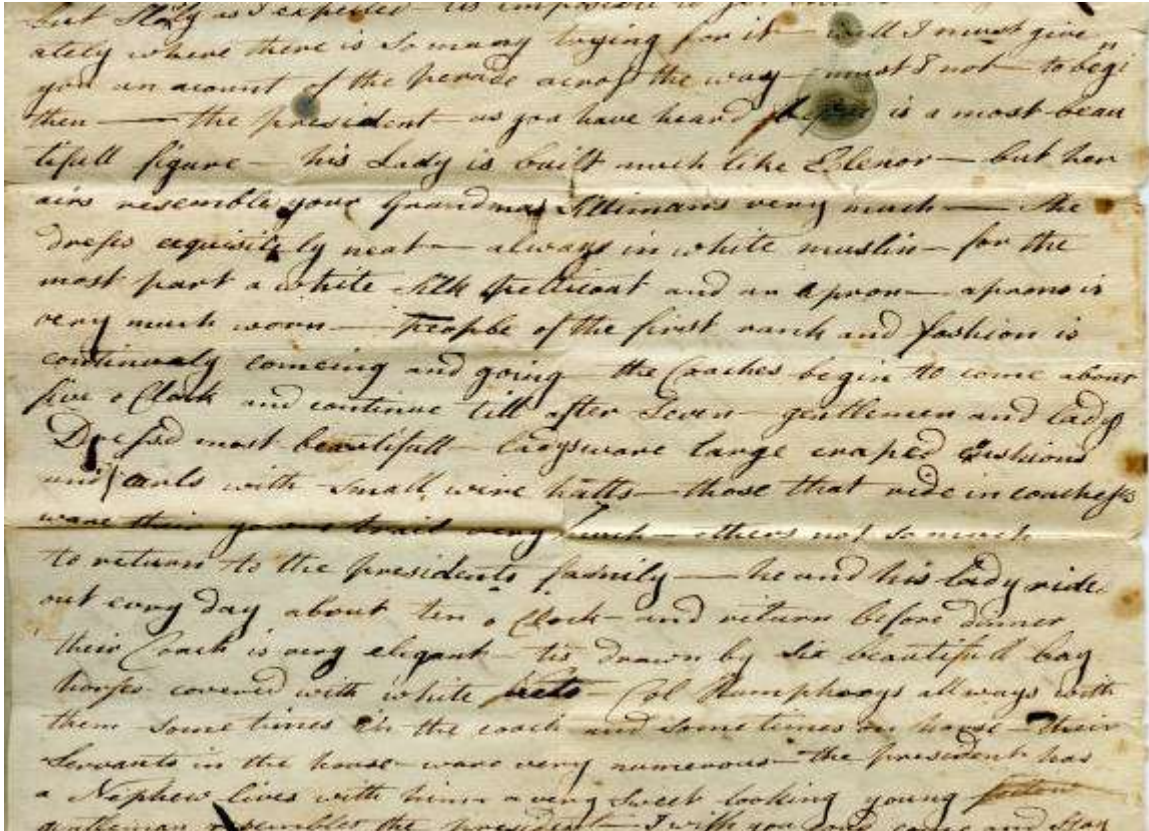 but as I expected tis impossible to
ately where there is so many trying for it — well I must give
you an acount of the perade across the way — must I not — to begin
then — the president — as you have heard before is a most beau
tifull figure — his Lady is built much like Elenor — but her
airs resemble your Grandma Sillimans very much — she
dress exquisitely neat — always in white muslin — for the
most part a white silk petticoat and an apron — aprons is
very much worn — People of the first ranck and fashion is
continualy comeing and going the Coaches begin to come about
five o Clock and continue till after Seven — gentlemen and ladys
Dressd most beautifull — ladys ware large craped Cushions
and curls with small wire hatts — those that ride in coaches
ware their gowns trail very much — others not so much
to return to the presidents family — he and his lady ride
out evry day about ten o Clock — and return before dinner
their Coach is very elegant — tis drawn by six beautifull bay
horses covered with white nets — Col Humphreys allways with
them some times in the coach and some times on horse — their
Servants in the house ware very numerous — the president has
a Nephew lives with him a very sweet looking young
gentleman resembles the president — I wish you come and